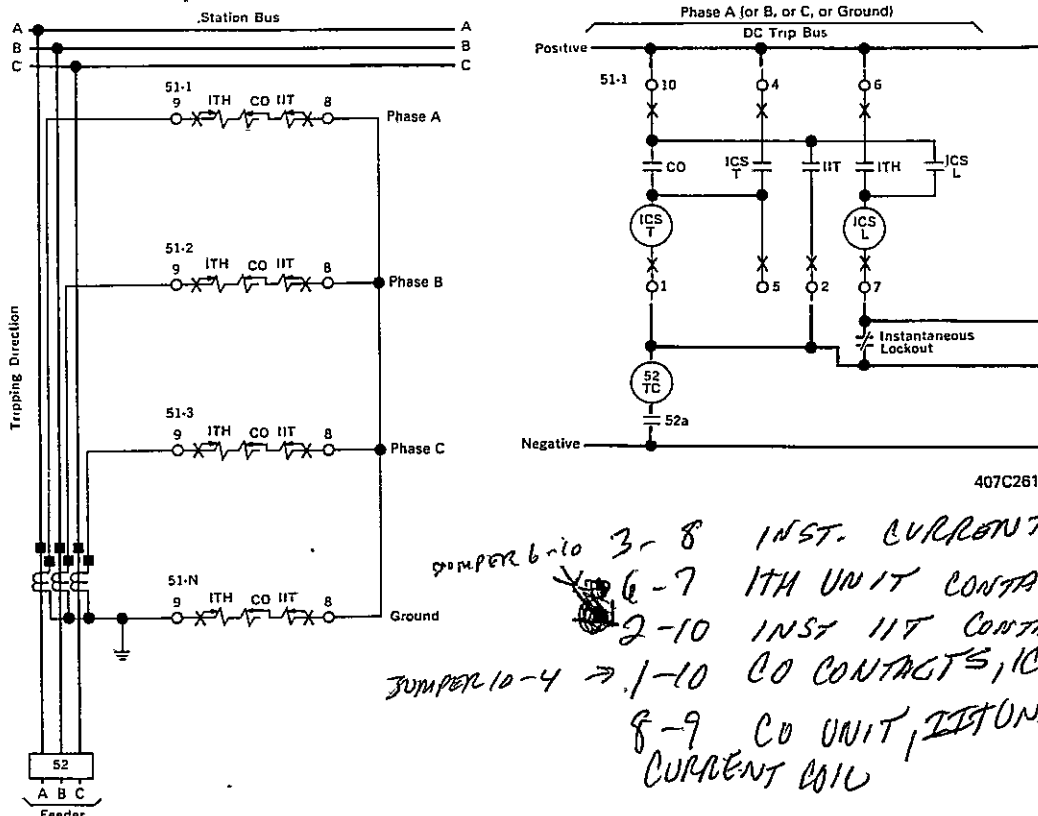 Station Bus
A A
B B
C C
51-1
9 ITH CO IIT 8
Phase A
51-2
9 ITH CO IIT 8
Phase B
Tripping Direction
51-3
9 ITH CO IIT 8
Phase C
51-N
9 ITH CO IIT 8
Ground
52
A B C
Feeder
Phase A (or B, or C, or Ground)
DC Trip Bus
Positive
51-1 10 4 6
CO ICS T IIT ITH ICS L
ICS T ICS L
1 5 2 7
Instantaneous
Lockout
52 TC
52a
Negative
407C261
JUMPER 6-10 3-8 INST. CURRENT
6-7 ITH UNIT CONTA
2-10 INST IIT CONTA
JUMPER 10-4 → 1-10 CO CONTACTS, IC
8-9 CO UNIT, IIT UN
CURRENT COIL